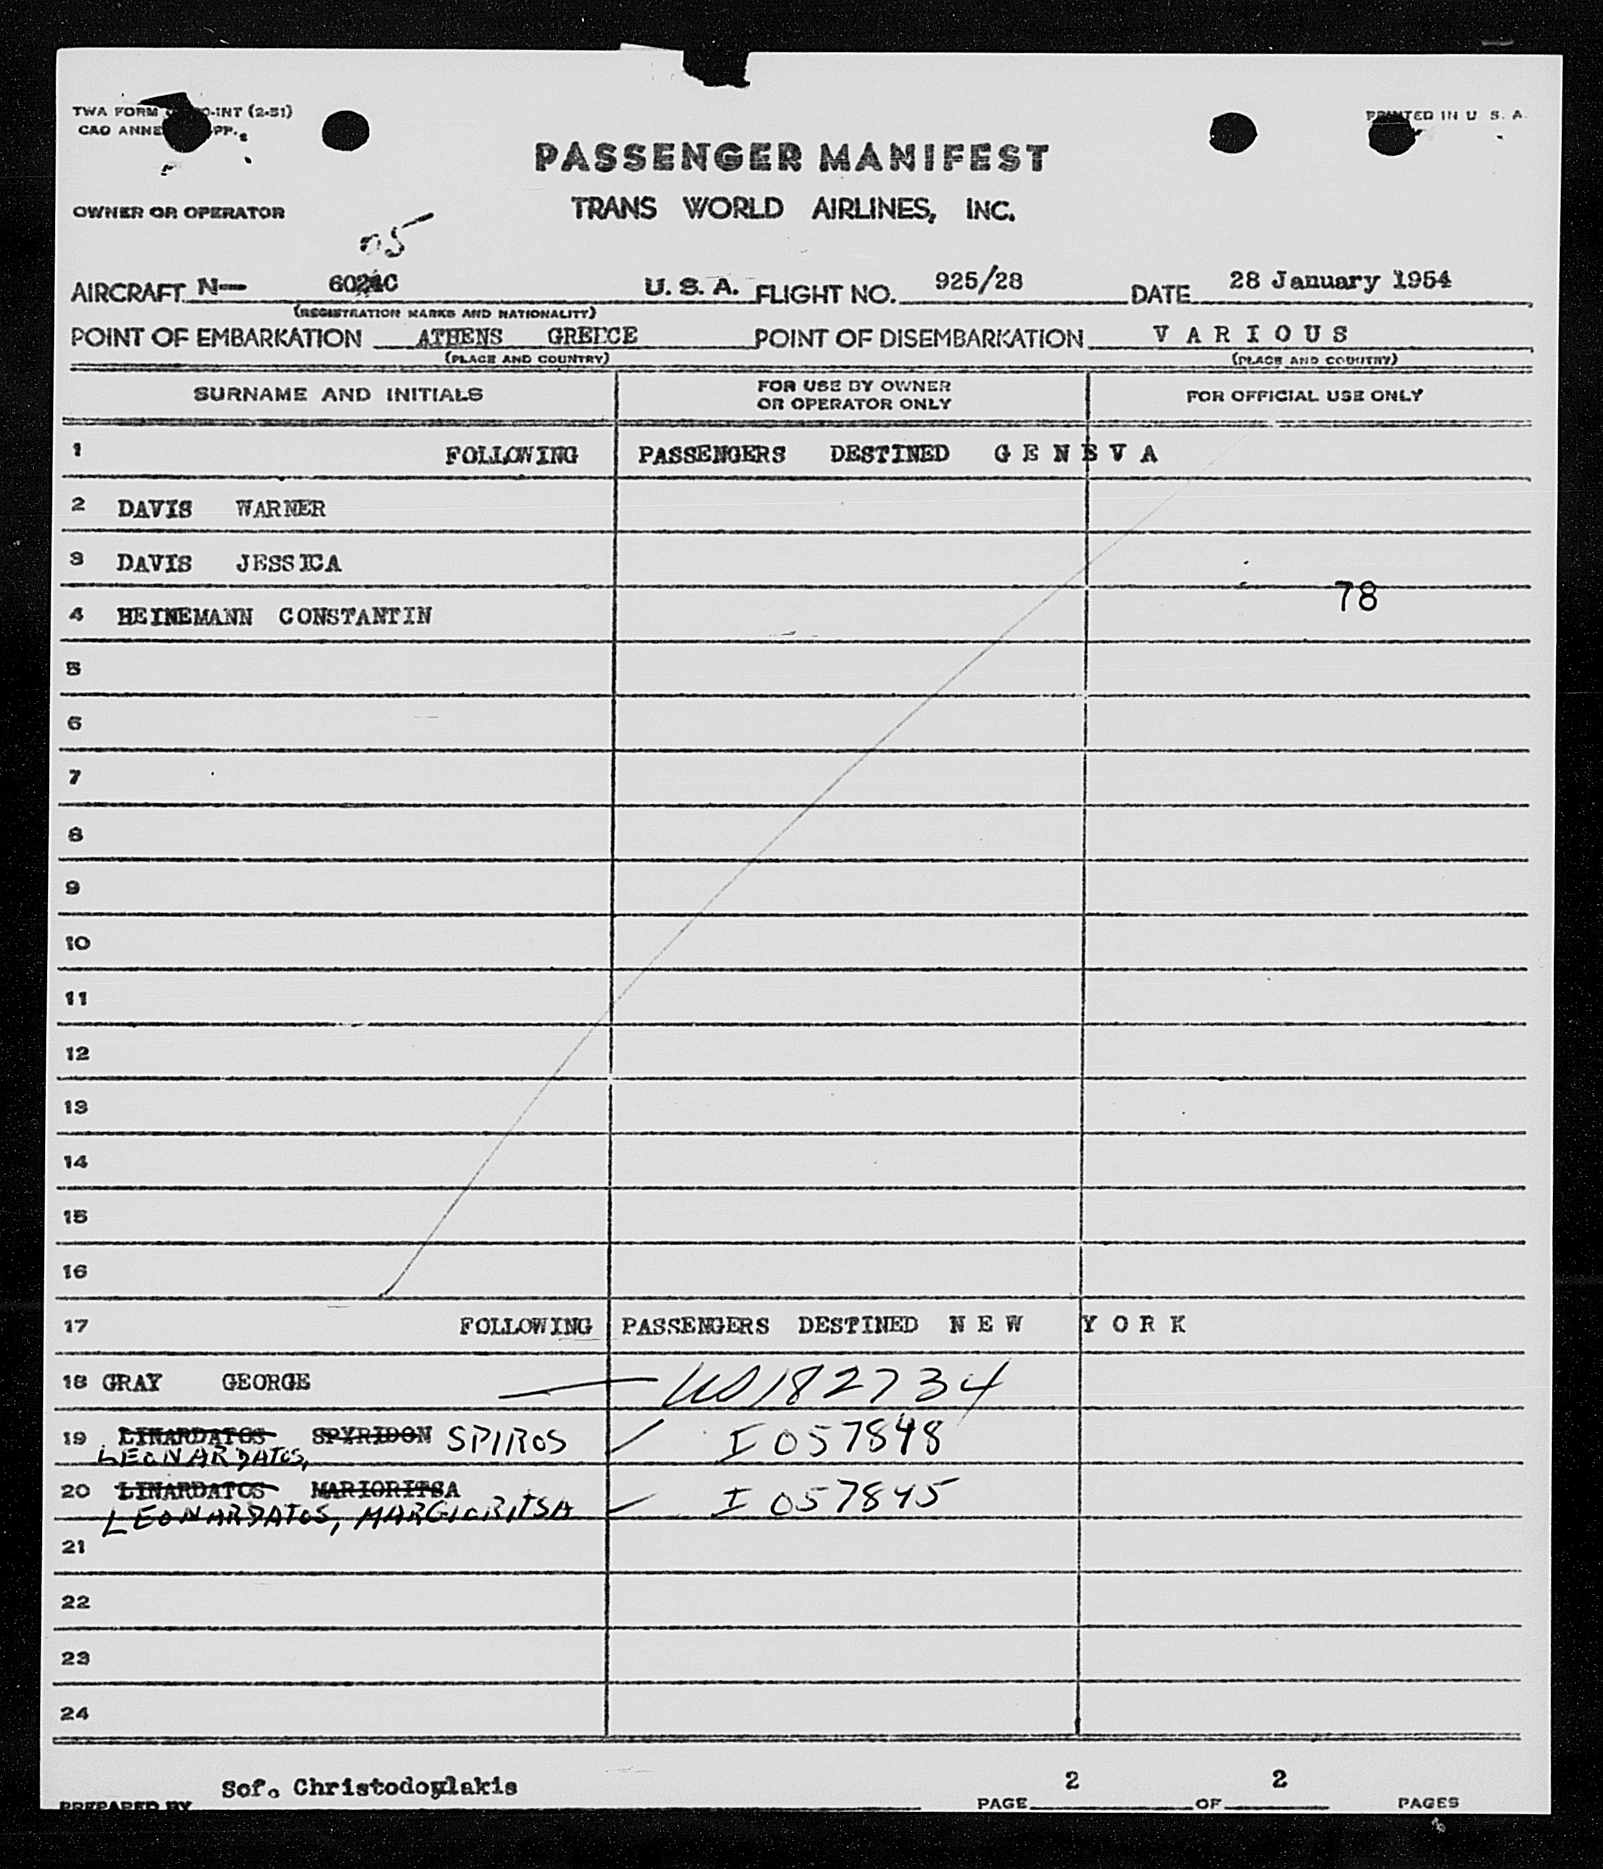 TWA FORM -INT (2-51)
CAO ANNE PP.
PRINTED IN U. S. A.
PASSENGER MANIFEST
OWNER OR OPERATOR
TRANS WORLD AIRLINES, INC.
05
AIRCRAFT N— C U. S. A. FLIGHT NO. 925/28 DATE 28 January 1954
(REGISTRATION MARKS AND NATIONALITY)
POINT OF EMBARKATION ATHENS GREECE POINT OF DISEMBARKATION V A R I O U S
(PLACE AND COUNTRY) (PLACE AND COUNTRY)
SURNAME AND INITIALS FOR USE BY OWNER OR OPERATOR ONLY FOR OFFICIAL USE ONLY
1 FOLLOWING PASSENGERS DESTINED G E N E V A
2 DAVIS WARNER
3 DAVIS JESSICA
78
4 HEINEMANN CONSTANTIN
5
6
7
8
9
10
11
12
13
14
15
16
17 FOLLOWING PASSENGERS DESTINED N E W Y O R K
18 GRAY GEORGE — 182734
19 LINARDATOS SPYRIDON SPIROS ✓ I 057848
LEONARDATOS,
20 LINARDATOS MARIORITSA ✓ I 057845
LEONARDATOS, MARGIORITSA
21
22
23
24
PREPARED BY Sof. Christodoylakis PAGE 2 OF 2 PAGES